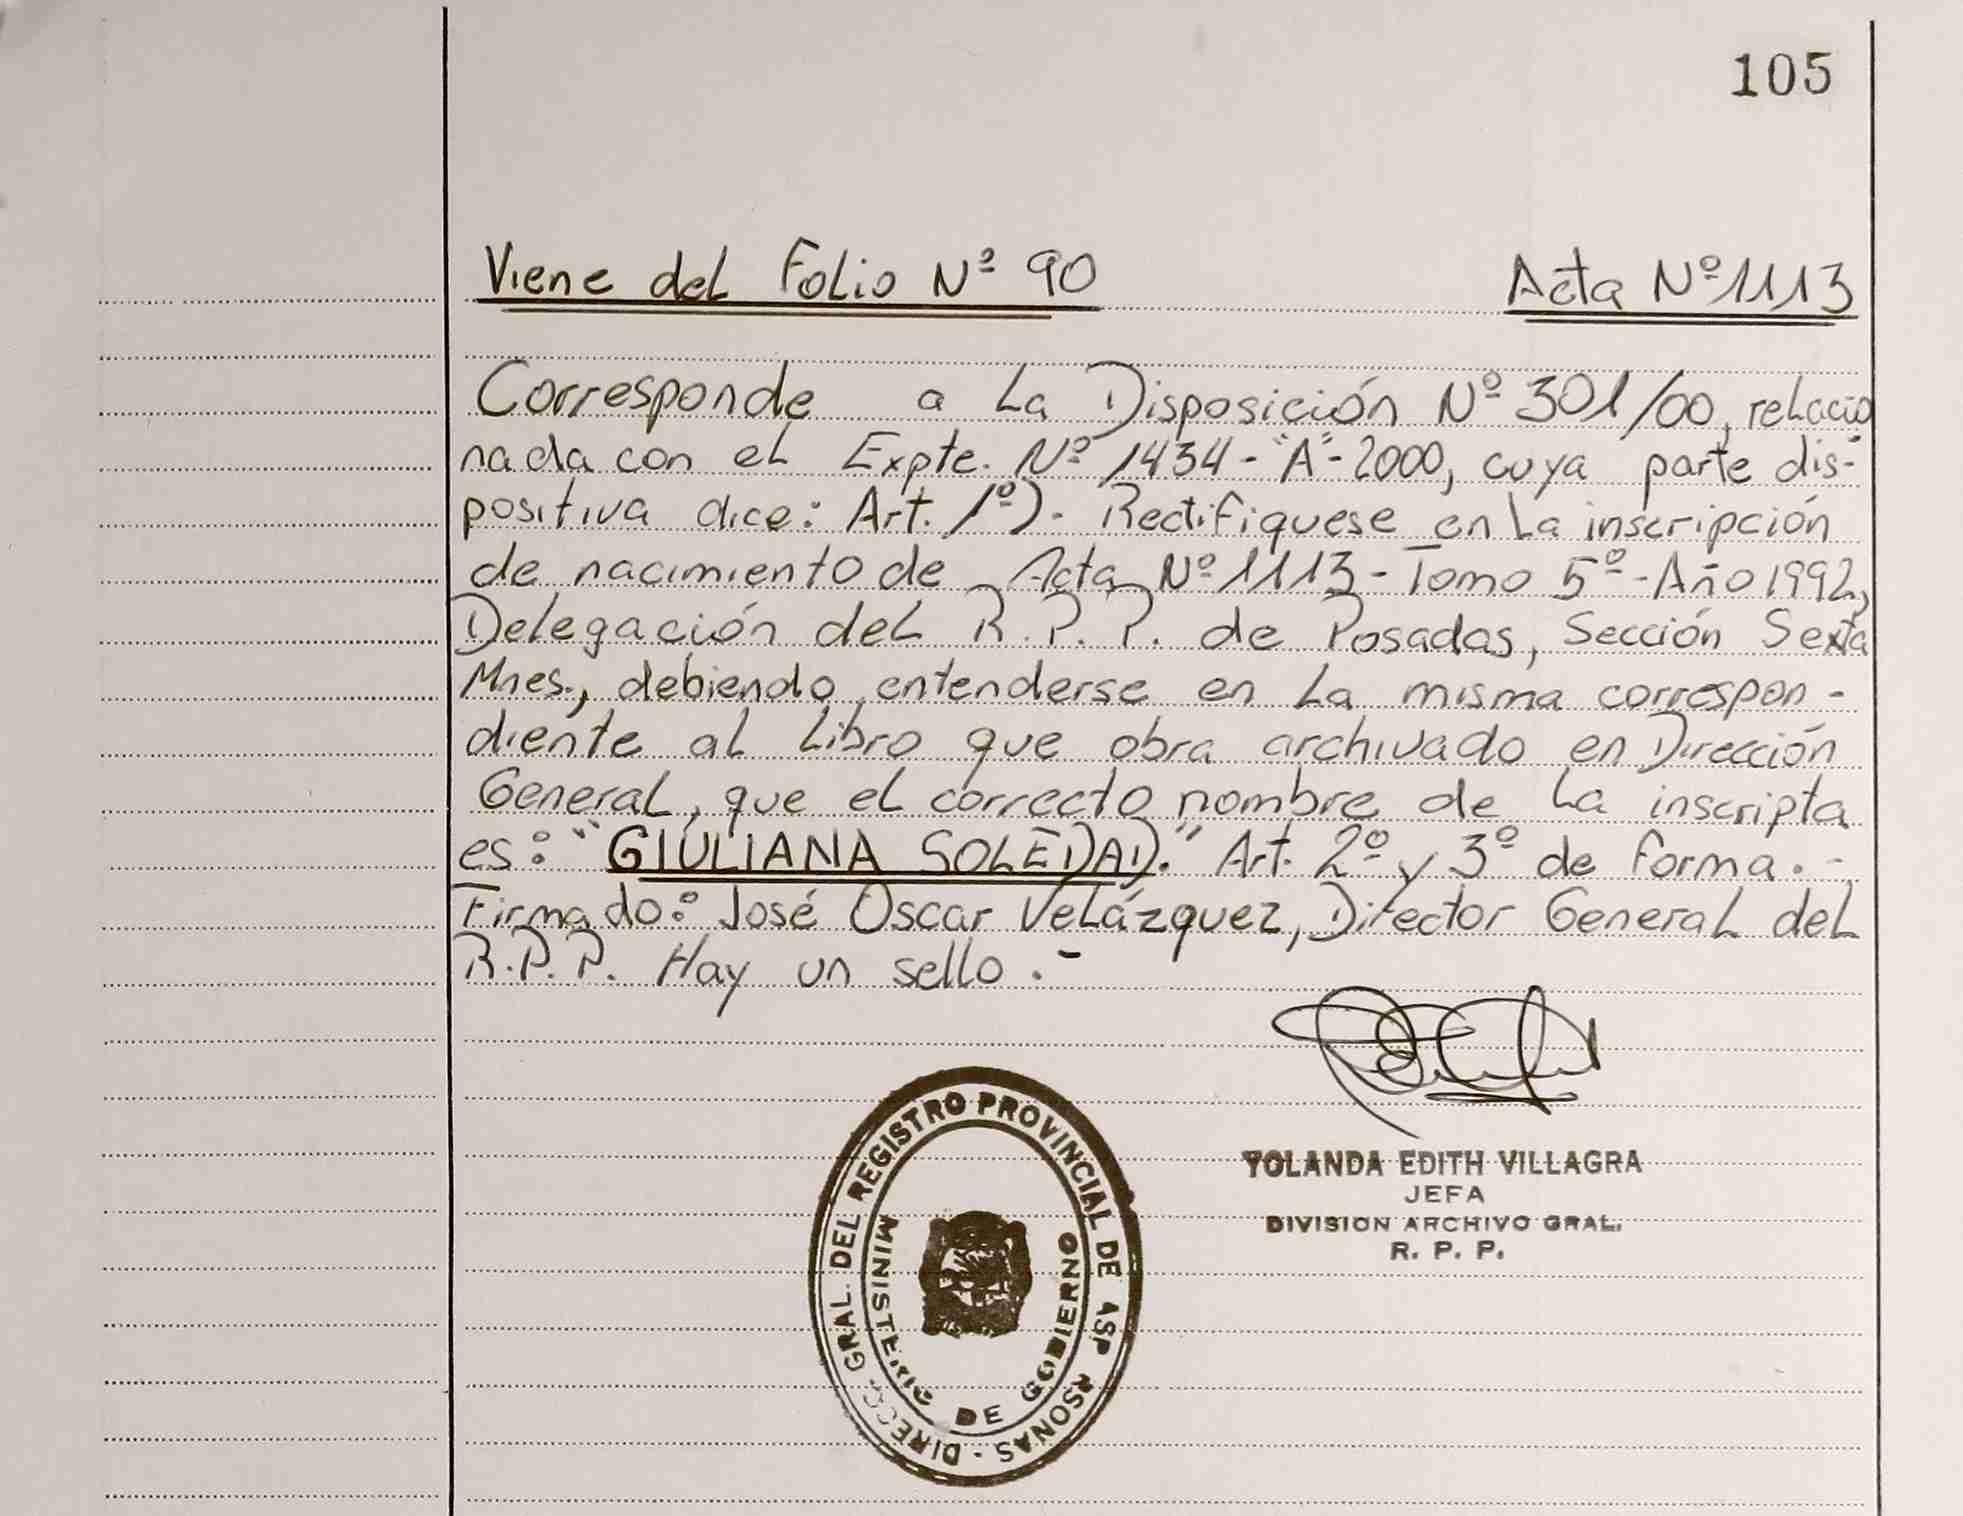 105
Viene del Folio Nº 90 Acta Nº 1113
Corresponde a la Disposición Nº 301/00, relacio
nada con el Expte. Nº 1434-"A"-2000, cuya parte dis-
positiva dice: Art. 1º). Rectifiquese en la inscripción
de nacimiento de Acta Nº 1113 - Tomo 5º - Año 1992,
Delegación del R.P.P. de Posadas, Sección Sexta
Mnes., debiendo entenderse en la misma correspon-
diente al Libro que obra archivado en Dirección
General, que el correcto nombre de la inscripta
es: "GIULIANA SOLEDAD." Art. 2º y 3º de forma.-
Firmado: José Oscar Velázquez, Director General del
R.P.P. Hay un sello.-
YOLANDA EDITH VILLAGRA
JEFA
DIVISION ARCHIVO GRAL.
R. P. P.
DIRECC GRAL. DEL REGISTRO PROVINCIAL DE ASP RSONAS -
MINISTERIO DE GOBIERNO